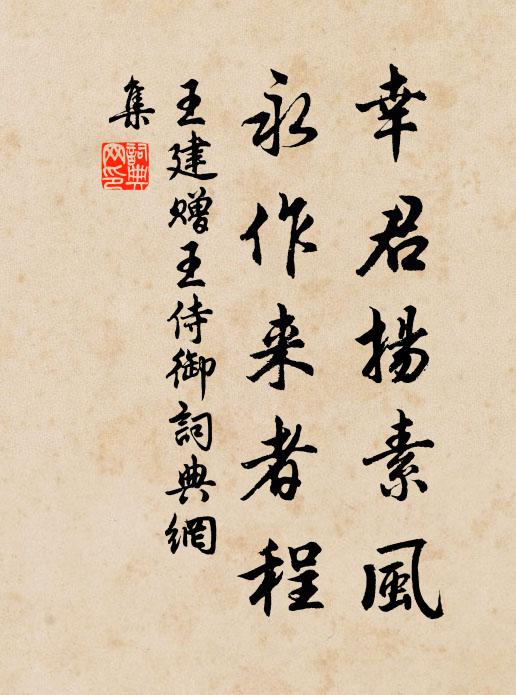 幸君揚素風
永作来者程
王建贈王侍御詞典網
集
詞典
网印